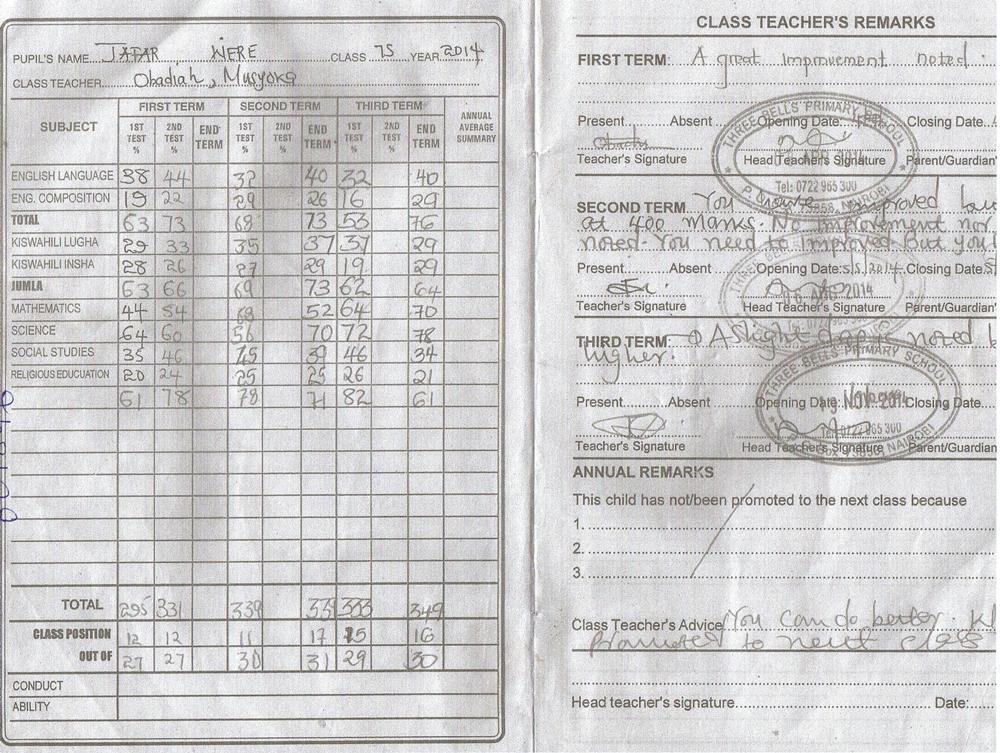 PUPIL'S NAME JAFAR WERE CLASS 7S YEAR 2014
CLASS TEACHER Obadiah, Musyoka
SUBJECT FIRST TERM SECOND TERM THIRD TERM ANNUAL AVERAGE SUMMARY
1ST TEST % 2ND TEST % END TERM 1ST TEST % 2ND TEST % END TERM 1ST TEST % 2ND TEST % END TERM
ENGLISH LANGUAGE 38 44 32 40 32 40
ENG. COMPOSITION 19 22 29 26 16 29
TOTAL 63 73 68 73 53 76
KISWAHILI LUGHA 29 33 35 37 37 29
KISWAHILI INSHA 28 26 27 29 19 29
JUMLA 63 66 69 73 62 64
MATHEMATICS 44 54 68 52 64 70
SCIENCE 64 60 56 70 72 78
SOCIAL STUDIES 35 46 45 39 46 34
RELIGIOUS EDUCUATION 20 24 25 25 26 21
61 78 78 71 82 61
TOTAL 295 331 339 339 333 349
CLASS POSITION 12 12 11 17 15 16
OUT OF 27 27 30 31 29 30
CONDUCT
ABILITY
CLASS TEACHER'S REMARKS
FIRST TERM: A great improvement noted.
Present Absent Opening Date: Closing Date
Teacher's Signature Head Teacher's Signature Parent/Guardian
THREE BELLS PRIMARY SCHOOL
Tel: 0722 965 300
NAIROBI
SECOND TERM You improved
at 400 marks. No improvement
noted. You need to improved. But you
Present Absent Opening Date: 5/5/2014 Closing Date
AUG 2014
Teacher's Signature Head Teacher's Signature Parent/Guardian
THIRD TERM: A slight drop is noted
higher.
THREE BELLS PRIMARY SCHOOL
Present Absent Opening Date: Closing Date
NOV 2014
Tel: 0722 965 300
NAIROBI
Teacher's Signature Head Teacher's Signature Parent/Guardian
ANNUAL REMARKS
This child has not/been promoted to the next class because
1.
2.
3.
Class Teacher's Advice You can do better.
Promoted to next class
Head teacher's signature Date: